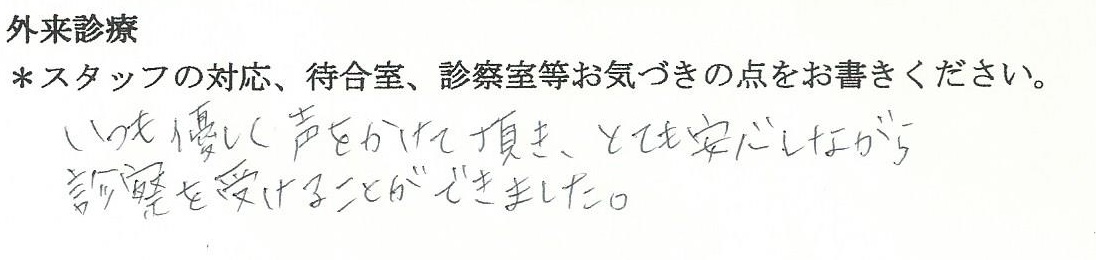 外来診療
＊スタッフの対応、待合室、診察室等お気づきの点をお書きください。
いつも優しく声をかけて頂き、とても安心しながら
診察を受けることができました。